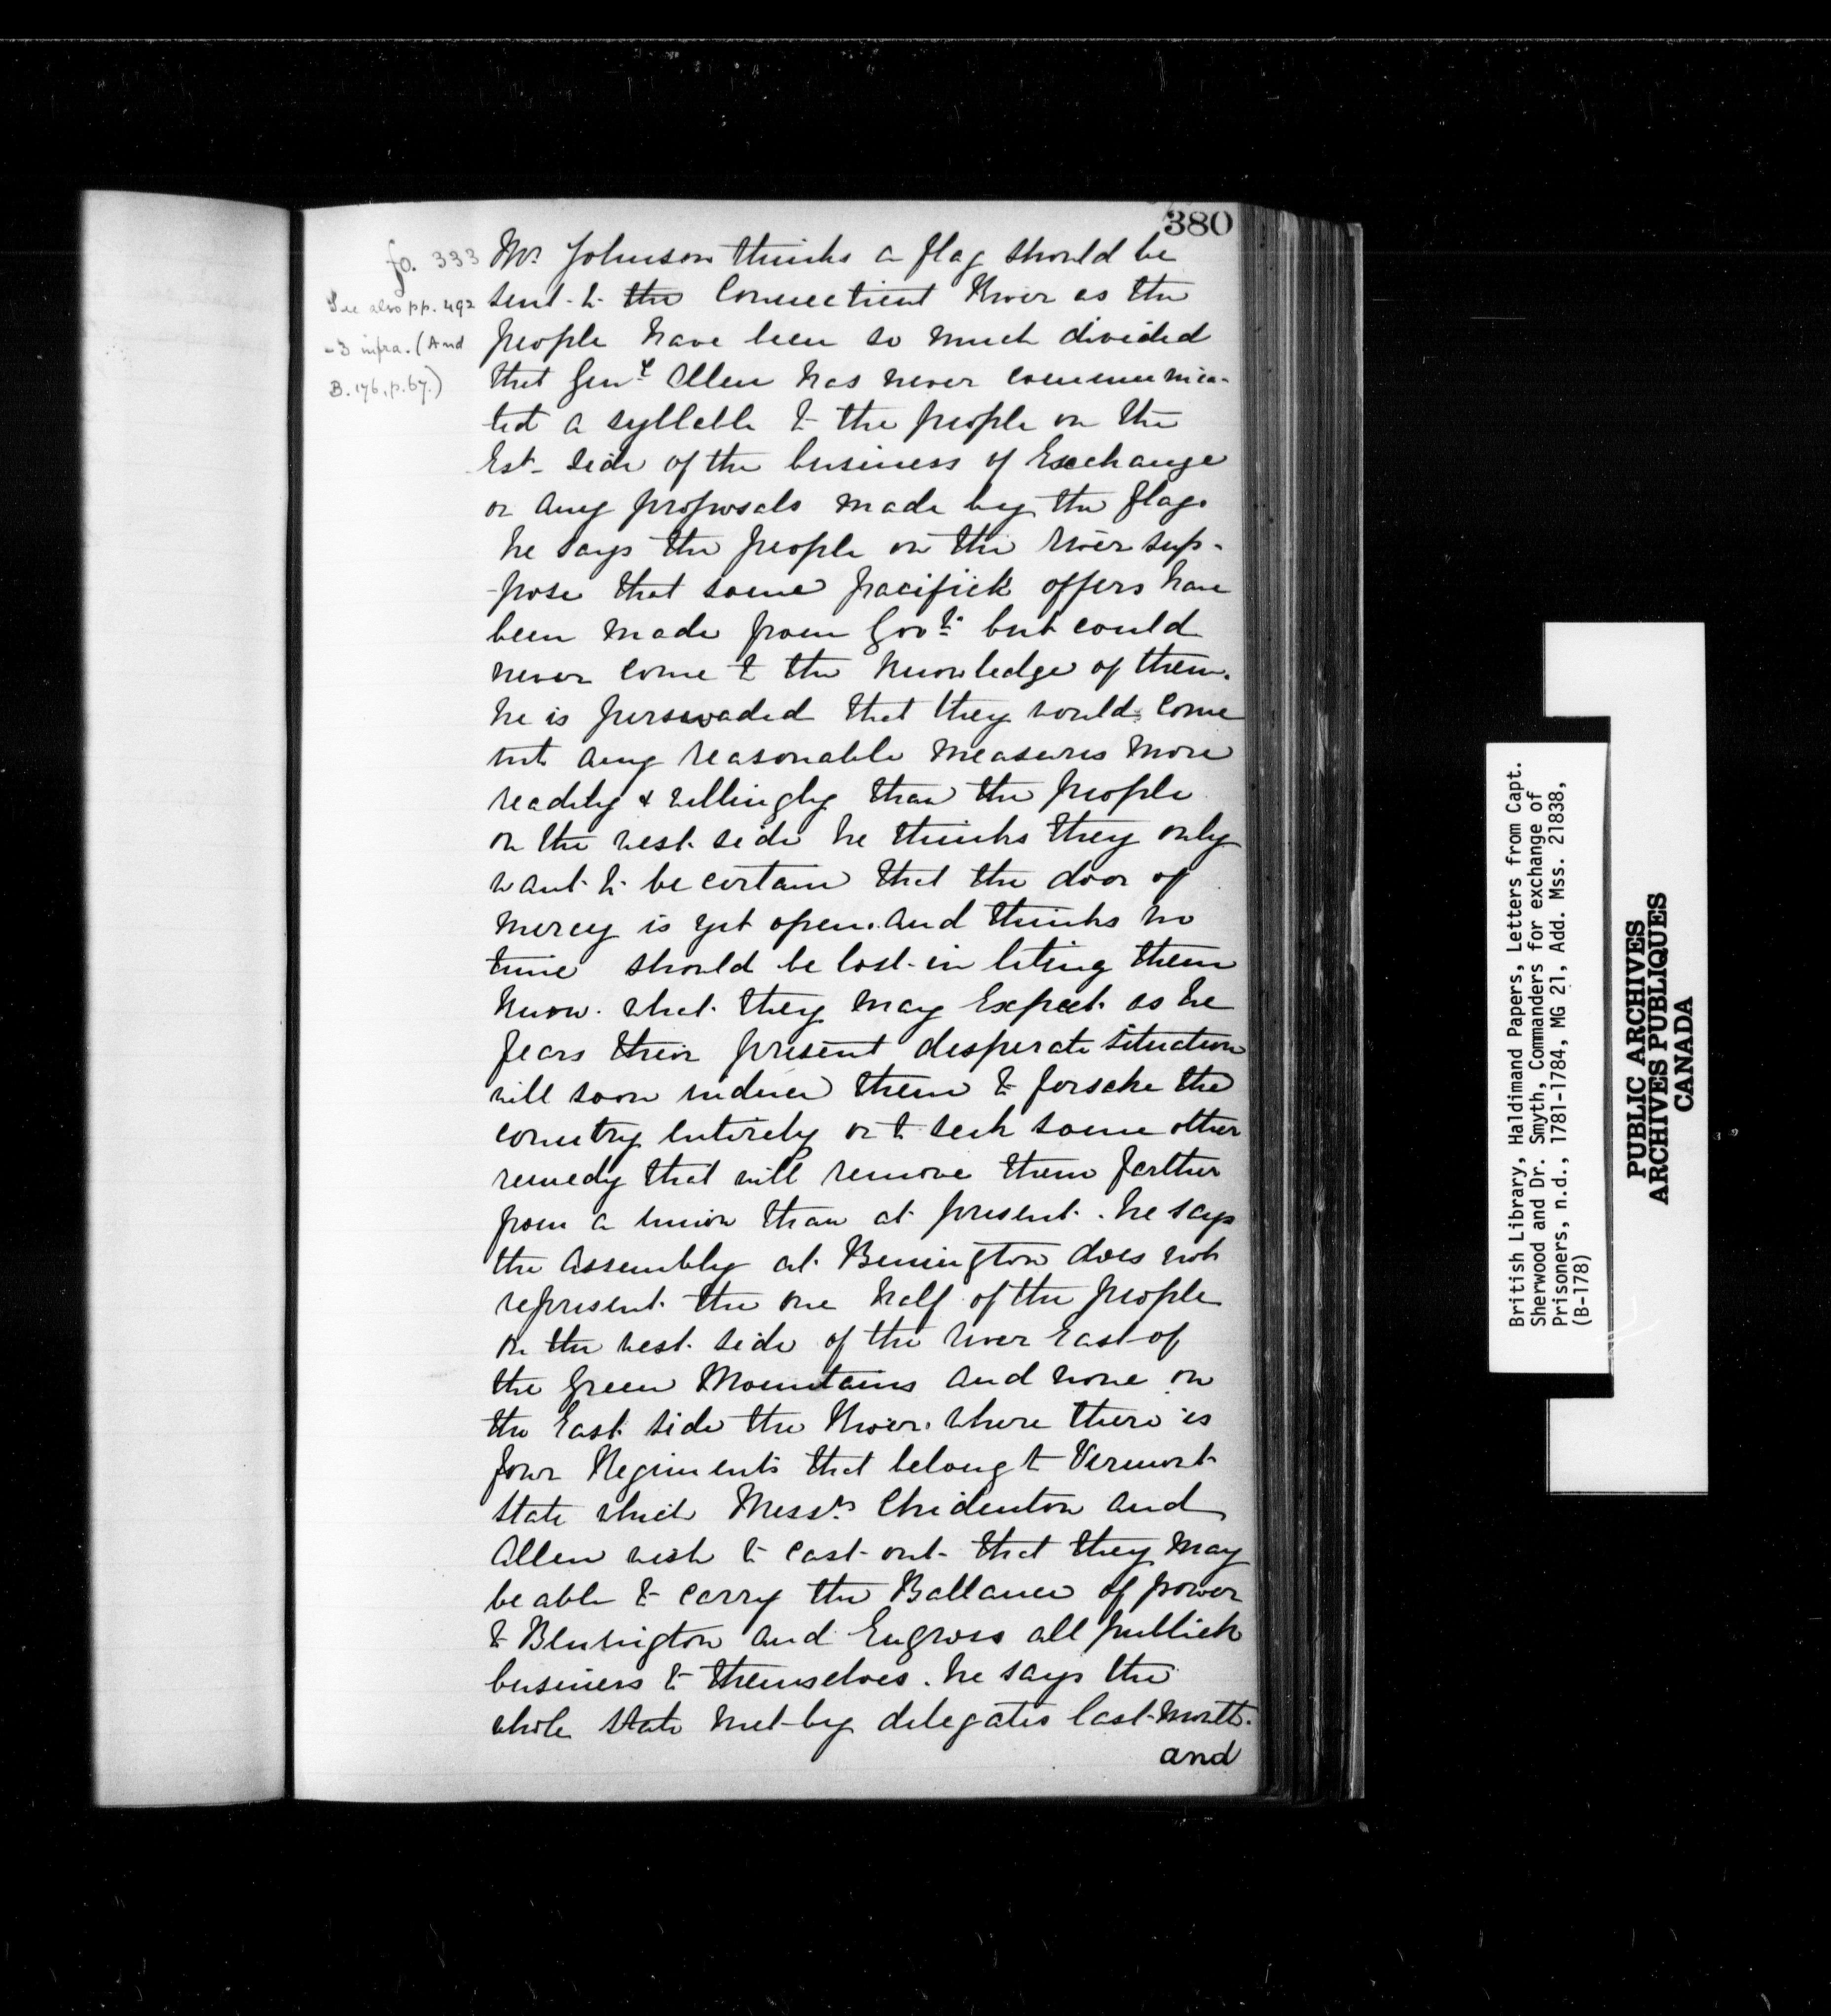 380
fo. 333
See also pp. 492
-3 infra. (And
B. 176, p. 67.)
Mr. Johnson thinks a flag should be
sent to the Connecticut River as the
people have been so much divided
that Genl Allen has never communica-
ted a syllable to the people on the
Est side of the business of Exchange
or any proposals made by the flag.
he says the people on the River sup-
-pose that some pacifick offers have
been made from Govt. but could
never come to the knowledge of them.
he is perswaded that they would come
into any reasonable measures more
readily & willingly than the people
on the west side he thinks they only
want to be certain that the door of
mercy is yet open. And thinks no
time should be lost in leting them
know what they may Expect as he
fears their present desperate situation
will soon induce them to forsake the
country entirely or to seek some other
remedy that will remove them farther
from a union than at present. he says
the Assembly at Benington does not
represent the one half of the people
on the west side of the river East of
the Green Mountains and none on
the East side the River. where there is
four Regiments that belong to Vermont
state which Messrs Chidenton and
Allen wish to cast out that they may
be able to carry the Ballance of power
to Bennington and Engross all publick
business to themselves. he says the
whole state met by delegates last month.
and
British Library, Haldimand Papers, Letters from Capt.
Sherwood and Dr. Smyth, Commanders for exchange of
Prisoners, n.d., 1781-1784, MG 21, Add. Mss. 21838,
(B-178)
PUBLIC ARCHIVES
ARCHIVES PUBLIQUES
CANADA